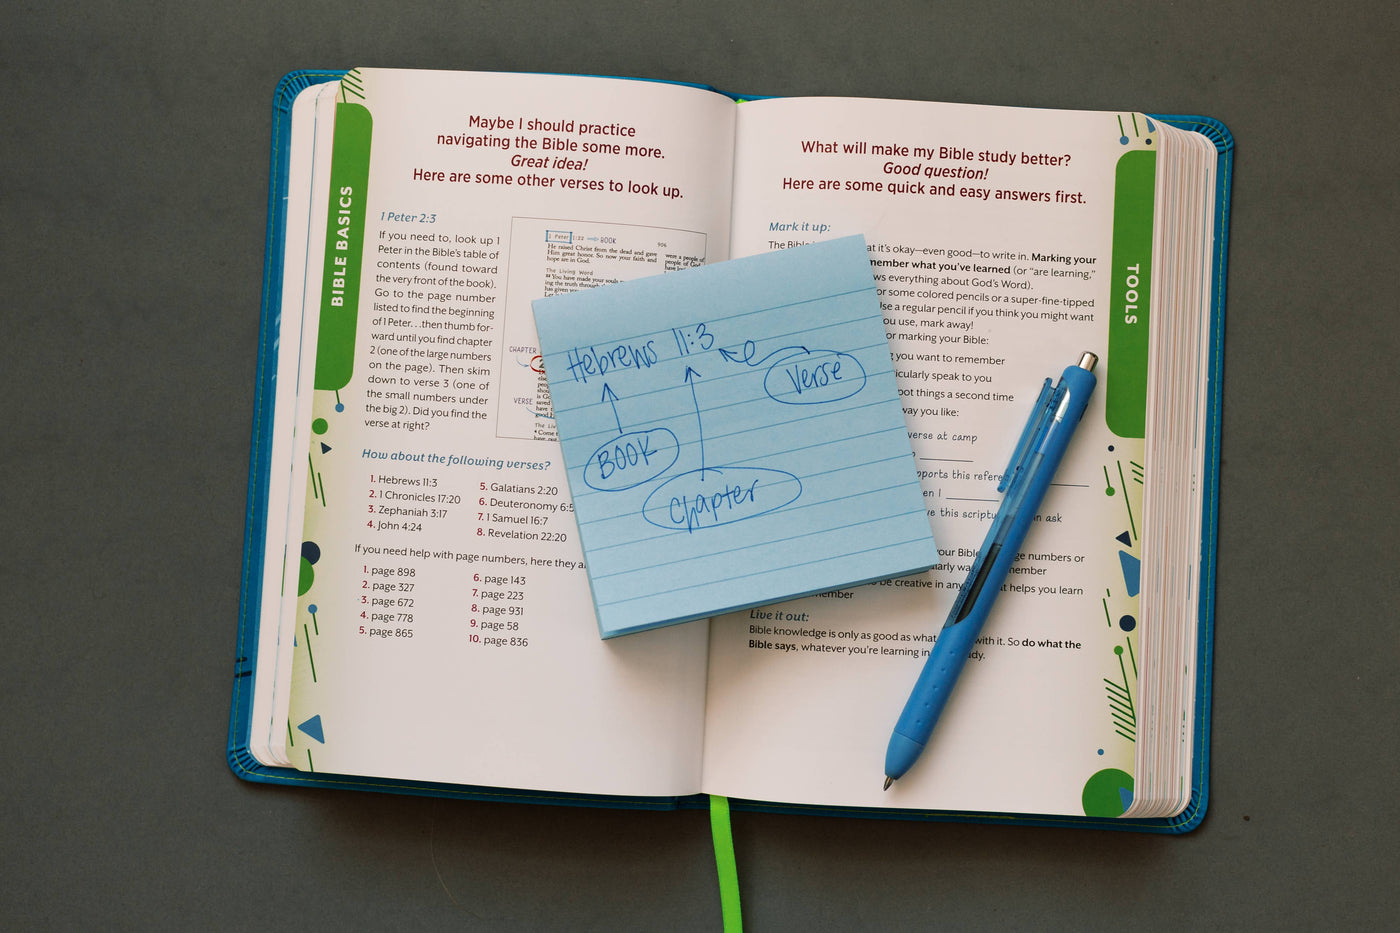 BIBLE BASICS
Maybe I should practice
navigating the Bible some more.
Great idea!
Here are some other verses to look up.
1 Peter 2:3
If you need to, look up 1
Peter in the Bible's table of
contents (found toward
the very front of the book).
Go to the page number
listed to find the beginning
of 1 Peter. . .then thumb for-
ward until you find chapter
2 (one of the large numbers
on the page). Then skim
down to verse 3 (one of
the small numbers under
the big 2). Did you find the
verse at right?
1 Peter 1:22
BOOK
906
He raised Christ from the dead and gave
Him great honor. So now your faith and
hope are in God.
The Living Word
CHAPTER
VERSE
How about the following verses?
1. Hebrews 11:3
2. 1 Chronicles 17:20
3. Zephaniah 3:17
4. John 4:24
5. Galatians 2:20
6. Deuteronomy 6:5
7. 1 Samuel 16:7
8. Revelation 22:20
If you need help with page numbers, here they
1. page 898
2. page 327
3. page 672
4. page 778
5. page 865
6. page 143
7. page 223
8. page 931
9. page 58
10. page 836
Hebrews 11:3
Verse
BOOK
Chapter
What will make my Bible study better?
Good question!
Here are some quick and easy answers first.
Mark it up:
The Bible at it's okay—even good—to write in. Marking your
member what you've learned (or "are learning,"
ws everything about God's Word).
or some colored pencils or a super-fine-tipped
Use a regular pencil if you think you might want
ou use, mark away!
or marking your Bible:
g you want to remember
icularly speak to you
pot things a second time
way you like:
verse at camp
pports this refere
en I
ve this scriptu in ask
our Bible ge numbers or
larly wa member
be creative in any at helps you learn
member
Live it out:
Bible knowledge is only as good as what with it. So do what the
Bible says, whatever you're learning in dy.
TOOLS